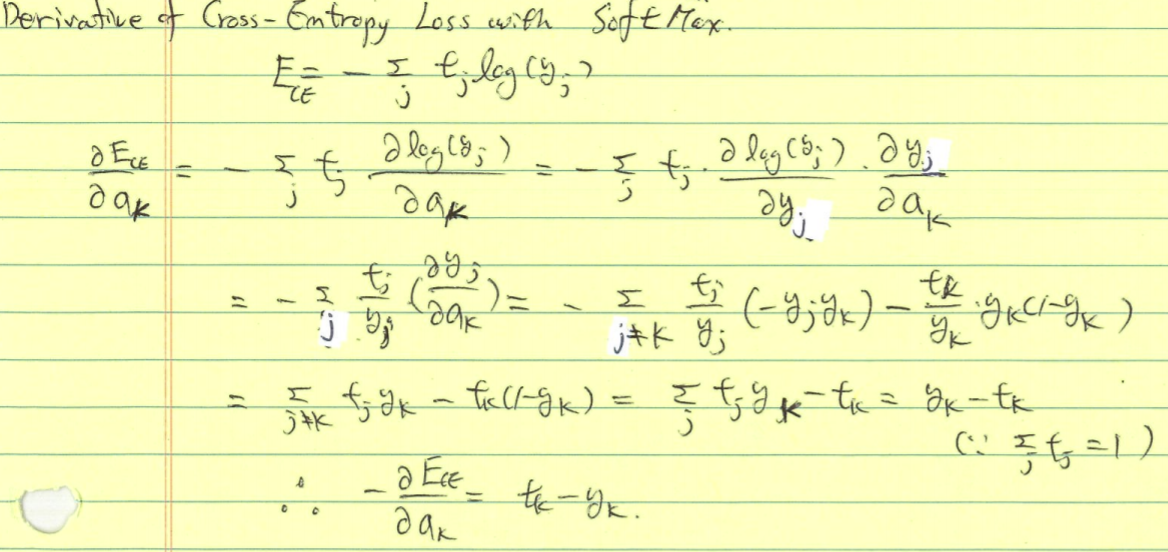 Derivative of Cross-Entropy Loss with SoftMax.
E_CE = - Σ_j t_j log(y_j)
∂E_CE/∂a_k = - Σ_j t_j ∂log(y_j)/∂a_k = - Σ_j t_j · ∂log(y_j)/∂y_j · ∂y_j/∂a_k
= - Σ_j t_j/y_j (∂y_j/∂a_k) = - Σ_{j≠k} t_j/y_j (-y_j y_k) - t_k/y_k · y_k(1-y_k)
= Σ_{j≠k} t_j y_k - t_k(1-y_k) = Σ_j t_j y_k - t_k = y_k - t_k
(∵ Σ_j t_j = 1)
∴ - ∂E_CE/∂a_k = t_k - y_k.